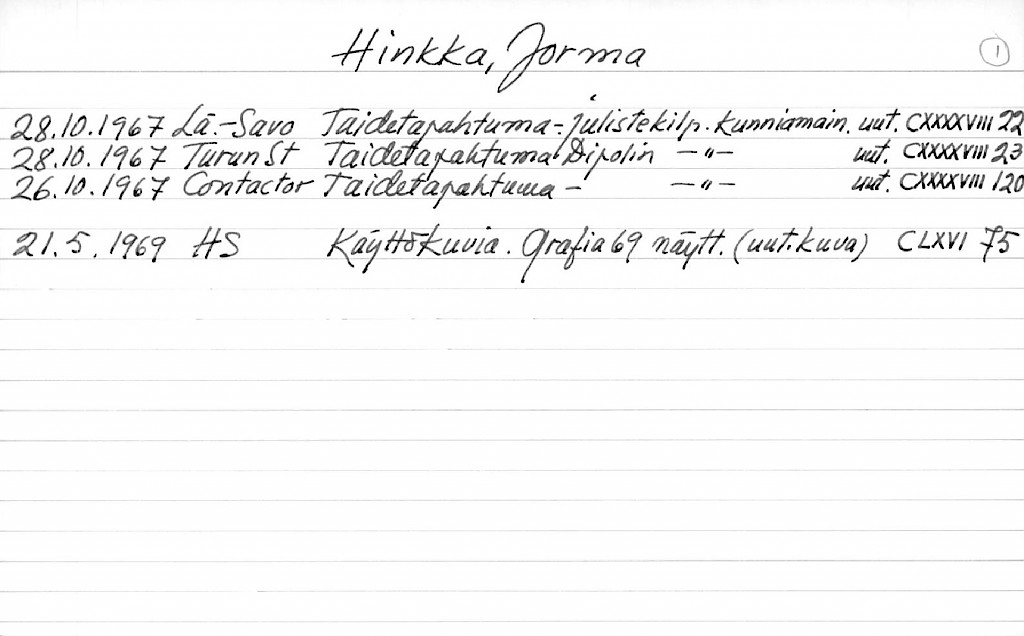 Hinkka, Jorma 1
28.10.1967 Lä.-Savo Taidetapahtuma-julistekilp. kunniamain. uut. CXXXXVIII 22
28.10.1967 TurunSt Taidetapahtuma Dipolin —"— uut. CXXXXVIII 23
26.10.1967 Contactor Taidetapahtuma- —"— uut. CXXXXVIII 120
21.5.1969 HS Käyttökuvia. Grafia 69 näytt. (uut.kuva) CLXVI 75